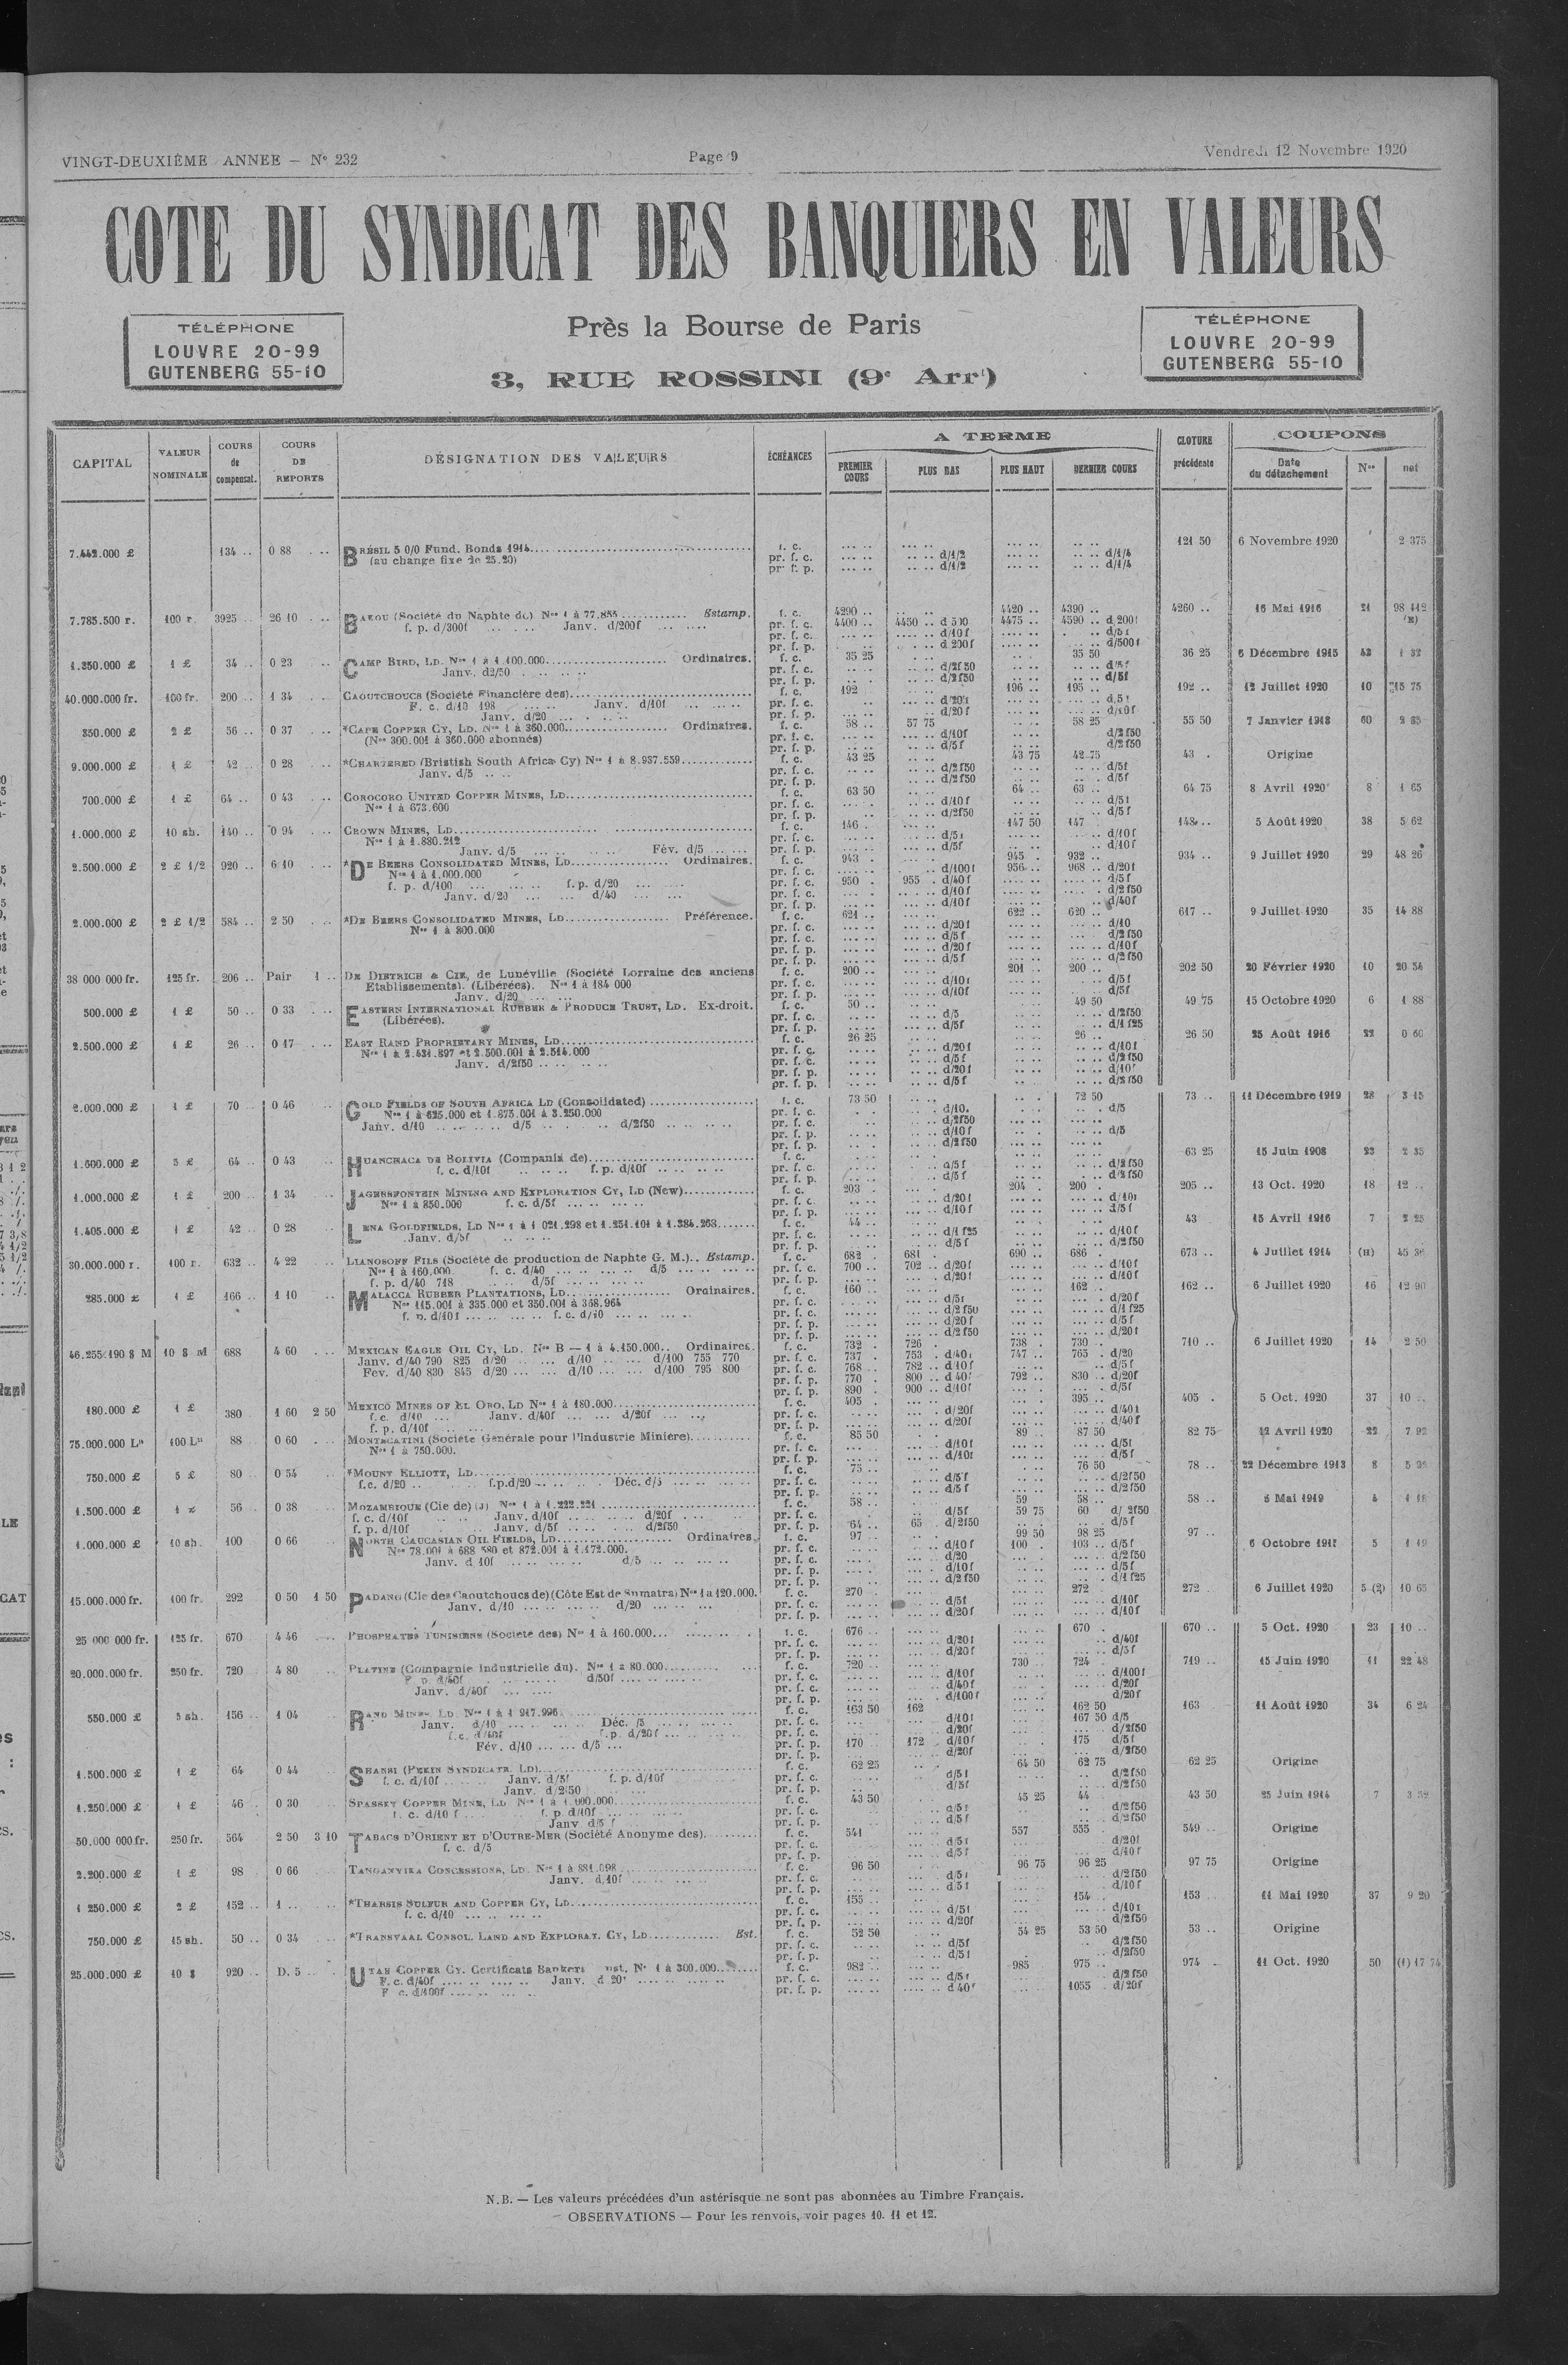 VINGT-DEUXIÈME ANNEE — N° 232 Page 9 Vendredi 12 Novembre 1920
COTE DU SYNDICAT DES BANQUIERS EN VALEURS
TÉLÉPHONE
LOUVRE 20-99
GUTENBERG 55-10
Près la Bourse de Paris
3, RUE ROSSINI (9e Arrt)
TÉLÉPHONE
LOUVRE 20-99
GUTENBERG 55-10
CAPITAL VALEUR NOMINALE COURS de compensat. COURS DE REPORTS DÉSIGNATION DES VALEURS ÉCHÉANCES A TERME PREMIER COURS PLUS BAS PLUS HAUT DERNIER COURS CLOTURE précédente COUPONS Date du détachement Nos net
7.442.000 £ 134 .. 0 88 BRÉSIL 5 0/0 Fund. Bonds 1914 f. c. 121 50 6 Novembre 1920 2 375
(au change fixe de 25.20) pr. f. c. d/1/2 d/1/4
pr. f. p. d/1/2 d/1/4
7.785.500 r. 100 r. 3925 .. 26 10 BAKOU (Société du Naphte de) Nos 1 à 77.855 Estamp. f. c. 4290 .. 4420 .. 4390 .. 4260 .. 16 Mai 1916 21 98 112
f. p. d/300f Janv. d/200f pr. f. c. 4400 .. 4450 .. d 500 4475 .. 4590 .. d 200f
1.350.000 £ 1 £ 34 .. 0 23 CAMP BIRD, LD. Nos 1 à 1.100.000 Ordinaires. f. c. 35 25 35 50 36 25 6 Décembre 1915 1 32
Janv. d2/50 pr. f. c. d/2f50 d/5f
40.000.000 fr. 100 fr. 200 .. 1 34 CAOUTCHOUCS (Société Financière des) f. c. 192 196 .. 195 .. 192 .. 12 Juillet 1920 10 15 75
F. c. d/10 198 Janv. d/10f
Janv. d/20
350.000 £ 2 £ 56 .. 0 37 *CAPE COPPER CY, LD. Nos 1 à 360.000 Ordinaires. f. c. 58 .. 57 75 58 25 55 50 7 Janvier 1918 60
(Nos 300.001 à 360.000 abonnés) pr. f. c. d/10f d/2f50
9.000.000 £ 1 £ 42 .. 0 28 *CHARTERED (Bristish South Africa Cy) Nos 1 à 8.937.559 f. c. 43 25 43 75 42 75 43 . Origine
Janv. d/5 pr. f. c. d/2f50 d/5f
700.000 £ 1 £ 64 .. 0 43 COROCORO UNITED COPPER MINES, LD f. c. 63 50 64 .. 63 .. 64 75 8 Avril 1920 8 1 65
Nos 1 à 673.600 pr. f. c. d/10f d/5f
1.000.000 £ 10 sh. 140 .. 0 94 CROWN MINES, LD f. c. 146 . 147 50 147 148 .. 5 Août 1920 38 5 62
Nos 1 à 1.880.212
Janv. d/5 Fév. d/5
2.500.000 £ 2 £ 1/2 920 .. 6 10 *DE BEERS CONSOLIDATED MINES, LD Ordinaires. f. c. 943 . 945 . 932 .. 934 .. 9 Juillet 1920 29 48 26
Nos 1 à 1.000.000 pr. f. c. d/100f 956 .. 968 .. d/20f
f. p. d/100 f.p. d/20 pr. f. c. 950 . 955 . d/40f d/5f
Janv. d/20 d/40 pr. f. p. d/10f d/2f50
2.000.000 £ 2 £ 1/2 584 .. 2 50 *DE BEERS CONSOLIDATED MINES, LD Préférence. f. c. 621 .. 622 .. 620 .. 617 .. 9 Juillet 1920 35 14 88
Nos 1 à 800.000 pr. f. c. d/20f d/10
38 000 000 fr. 125 fr. 206 .. Pair 1 .. DE DIETRICH & CIE, de Lunéville (Société Lorraine des anciens f. c. 200 .. 201 .. 200 .. 202 50 20 Février 1920 10 20 54
Etablissements). (Libérées). Nos 1 à 184 000 pr. f. c. d/10f d/5f
Janv. d/20 pr. f. p. d/10f d/5f
500.000 £ 1 £ 50 .. 0 33 EASTERN INTERNATIONAL RUBBER & PRODUCE TRUST, LD. Ex-droit. f. c. 50 .. 49 50 49 75 15 Octobre 1920 6 1 88
(Libérées). pr. f. c. d/5 d/2f50
2.500.000 £ 1 £ 26 .. 0 17 EAST RAND PROPRIETARY MINES, LD f. c. 26 25 26 .. 26 50 25 Août 1916 22 0 60
Nos 1 à 2.431.897 et 2.500.001 à 2.514.000 pr. f. c. d/20f d/10f
Janv. d/2f50 pr. f. c. d/5f d/2f50
2.000.000 £ 1 £ 70 .. 0 46 GOLD FIELDS OF SOUTH AFRICA LD (Consolidated) f. c. 73 50 72 50 73 .. 11 Décembre 1919 28 3 15
Nos 1 à 625.000 et 1.875.001 à 3.250.000 pr. f. c. d/10. d/5
Janv. d/10 d/5 d/2f50
1.600.000 £ 5 £ 64 .. 0 43 HUANCHACA DE BOLIVIA (Compania de) f. c. 63 25 15 Juin 1908 23 2 35
f. c. d/10f f. p. d/10f pr. f. c. d/5f d/2f50
1.000.000 £ 1 £ 200 .. 1 34 JAGERSFONTEIN MINING AND EXPLORATION CY, LD (New) f. c. 203 .. 204 .. 200 . 205 .. 13 Oct. 1920 18 12 ..
Nos 1 à 850.000 f. c. d/5f pr. f. c. d/20f d/10f
1.405.000 £ 1 £ 42 .. 0 28 LENA GOLDFIELDS, LD Nos 1 à 1 021.298 et 1.251.101 à 1.384.263 f. c. 44 .. 43 15 Avril 1916 7 2 25
Janv. d/5f pr. f. c. d/1 f25 d/10f
30.000.000 r. 100 r. 632 .. 4 22 LIANOSOFF FILS (Société de production de Naphte G. M.) Estamp. f. c. 682 . 681 . 690 .. 686 . 673 .. 4 Juillet 1914 (H)
Nos 1 à 160.000. f. c. d/40 d/5 pr. f. c. 700 .. 702 .. d/20f d/10f
f. p. d/40 718 d/5f pr. f. p. d/20f d/10f
285.000 £ 1 £ 166 .. 1 10 MALACCA RUBBER PLANTATIONS, LD Ordinaires. f. c. 160 .. 162 .. 162 .. 6 Juillet 1920 16 12 90
Nos 115.001 à 335.000 et 350.001 à 368.964
f. p. d/10f f. c. d/10
46.255.190 $ M 10 $ M 688 4 60 MEXICAN EAGLE OIL CY, LD. Nos B — 1 à 4.150.000 Ordinaires. f. c. 732 . 726 . 738 . 730 . 710 .. 6 Juillet 1920 14 2 50
Janv. d/40 790 825 d/20 d/10 d/100 755 770 pr. f. c. 737 . 753 . d/40f 747 .. 765 . d/20
Fev. d/40 830 845 d/20 d/10 d/100 795 800 pr. f. c. 768 .. 782 .. d/10f d/5f
pr. f. p. 770 . 800 .. d 40f 792 .. 830 .. d/20f
pr. f. p. 890 . 900 .. d/10f d/5f
180.000 £ 1 £ 380 1 60 2 50 MEXICO MINES OF EL ORO, LD Nos 1 à 180.000 f. c. 405 . 395 .. 405 . 5 Oct. 1920 37 10
f. c. d/10 Janv. d/40f d/20f pr. f. c. d/20f d/40f
f. p. d/10f pr. f. p. d/20f d/40f
75.000.000 Ls 100 Ls 88 0 60 MONTECATINI (Société Générale pour l'Industrie Minière) f. c. 85 50 89 .. 87 50 82 75 12 Avril 1920 22 7 92
Nos 1 à 750.000. pr. f. c. d/10f d/5f
750.000 £ 5 £ 80 0 54 *MOUNT ELLIOTT, LD f. c. 75 .. 76 50 78 .. 22 Décembre 1913 8
f.c. d/20 f.p.d/20 Déc. d/5 pr. f. c. d/5f d/2f50
1.500.000 £ 56 0 38 MOZAMBIQUE (Cie de) (J) Nos 1 à 1.222.221 f. c. 58 .. 59 58 .. 58 .. 5 Mai 1919 4
f. c. d/10f Janv. d/10f d/20f pr. f. c. d/5f 59 75 60 d/ 2f50
f. p. d/10f Janv. d/5f d/2f50 pr. f. p. 64 .. 65 . d/2f50 d/5f
1.000.000 £ 10 sh. 100 0 66 NORTH CAUCASIAN OIL FIELDS, LD Ordinaires. f. c. 97 .. 99 50 98 25 97 .. 6 Octobre 5
Nos 78.001 à 688 580 et 872.001 à 1.172.000. pr. f. c. d/10f 100 . 103 .. d/5f
Janv. d 10f d/5 pr. f. c. d/20 d/2f50
15.000.000 fr. 100 fr. 292 0 50 1 50 PADANG (Cie des Caoutchoucs de) (Côte Est de Sumatra) Nos 1 a 120.000. f. c. 270 . 272 272 6 Juillet 1920 5 (2) 10 65
Janv. d/10 d/20 pr. f. c. d/5f d/10f
25 000 000 fr. 125 fr. 670 4 46 PHOSPHATES TUNISIENS (Société des) Nos 1 à 160.000 f. c. 676 .. 670 . 670 .. 5 Oct. 1920 23 10 ..
pr. f. c. d/20f d/40f
20.000.000 fr. 250 fr. 720 4 80 PLATINE (Compagnie Industrielle du). Nos 1 à 80.000 f. c. 720 .. 730 .. 724 . 719 .. 15 Juin 1920 41 22 48
F. p. d/40f d/50f
Janv. d/40f
550.000 £ 5 sh. 156 1 04 RAND MINES, LD. Nos 1 à 1 917.996 f. c. 163 50 162 162 50 163 11 Août 1920 34 6 24
Janv. d/10 Déc. /5 pr. f. c. d/10f 167 50 d/5
f.p. d/20f pr. f. c. d/20f d/2f50
Fév. d/10 d/5 pr. f. p. 170 172 d/10f 175 d/5f
1.500.000 £ 1 £ 64 0 44 SHANSI (PEKIN SYNDICATE LD) f. c. 62 25 64 50 62 75 62 25 Origine
f. c. d/10f Janv. d/5f f. p. d/10f
Janv. d/2 50
1.250.000 £ 1 £ 46 0 30 SPASSKY COPPER MINE, LD Nos 1 à 1.000.000 f. c. 43 50 45 25 44 43 50 25 Juin 1914 7
f. c. d/10 f f. p d/10f
Janv d/5 f
50.000 000 fr. 250 fr. 564 2 50 3 10 TABACS D'ORIENT ET D'OUTRE-MER (Société Anonyme des) f. c. 541 557 555 . 549 .. Origine
f. c. d/5 pr. f. c. d/5f d/20f
2.200.000 £ 1 £ 98 0 66 TANGANYIKA CONCESSIONS, LD. Nos 1 à 881.098 f. c. 96 50 96 75 96 25 97 75 Origine
Janv. d.10f pr. f. c. d/5f d/2f50
1 250.000 £ 2 £ 152 1 .. *THARSIS SULFUR AND COPPER CY, LD f. c. 155 .. 154 . 153 11 Mai 1920 37 9 20
f. c. d/10 pr. f. c. d/5f d/10f
750.000 £ 15 sh. 50 .. 0 34 *TRANSVAAL CONSOL. LAND AND EXPLORAT. CY, LD Est. f. c. 52 50 54 25 53 50 53 .. Origine
pr. f. c. d/5f d/2f50
25.000.000 £ 10 $ 920 .. D. 5 UTAH COPPER CY. Certificats Bankers Nos 1 à 300.000 f. c. 982 .. 985 975 .. 974 11 Oct. 1920 50 (1) 17 74
F. c. d/40f Janv. d 20f pr. f. c. d/5f d/2f50
F c. d/100f pr. f. p. d 40f 1055 . d/20f
N.B. — Les valeurs précédées d'un astérisque ne sont pas abonnées au Timbre Français.
OBSERVATIONS — Pour les renvois, voir pages 10. 11 et 12.